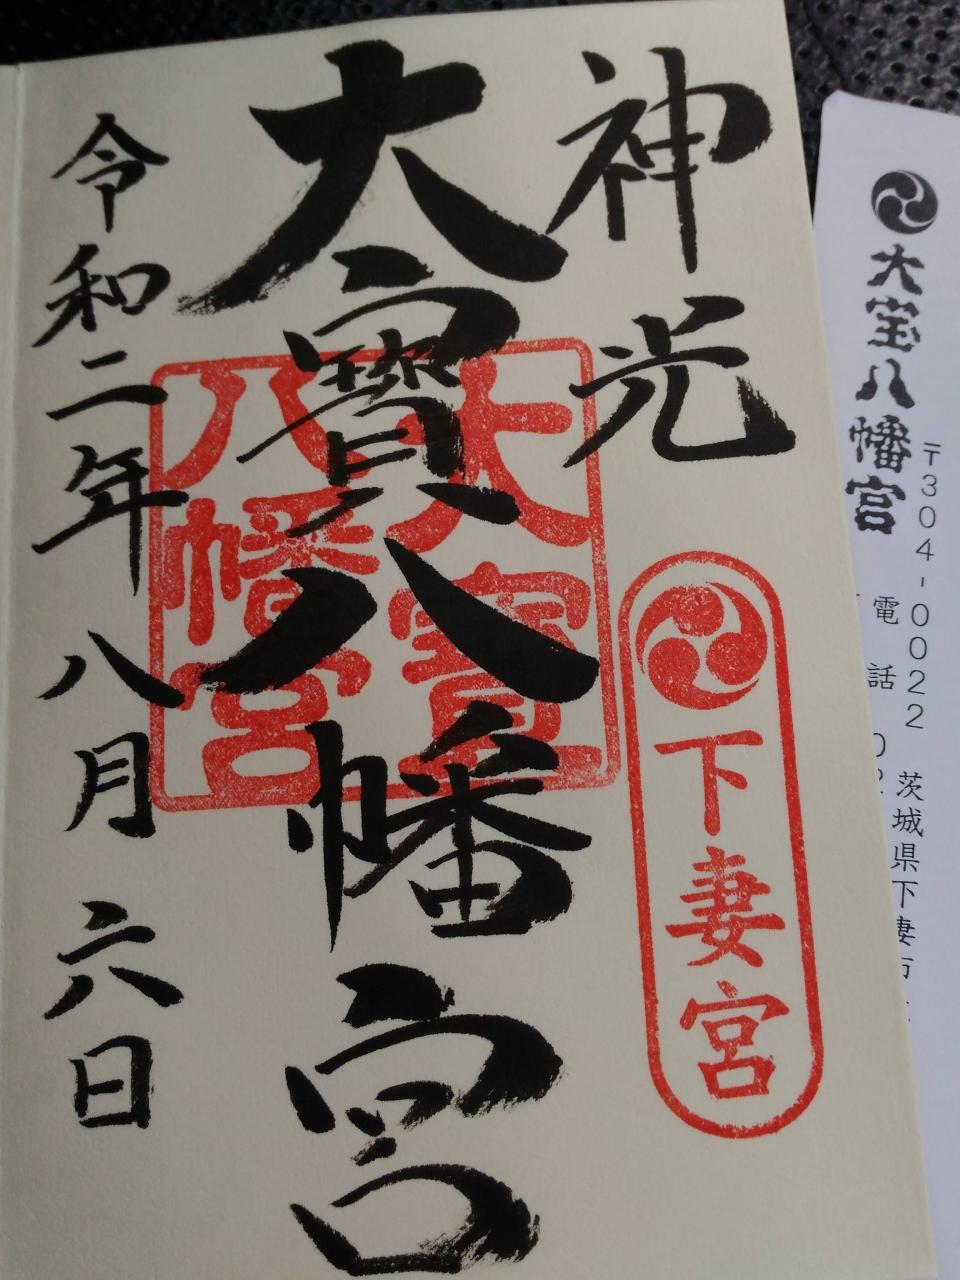 神光
下妻宮
大寳八幡宮
大寳
八幡宮
令和二年八月六日
大宝八幡宮
〒304-0022 茨城県下妻市
電話 0